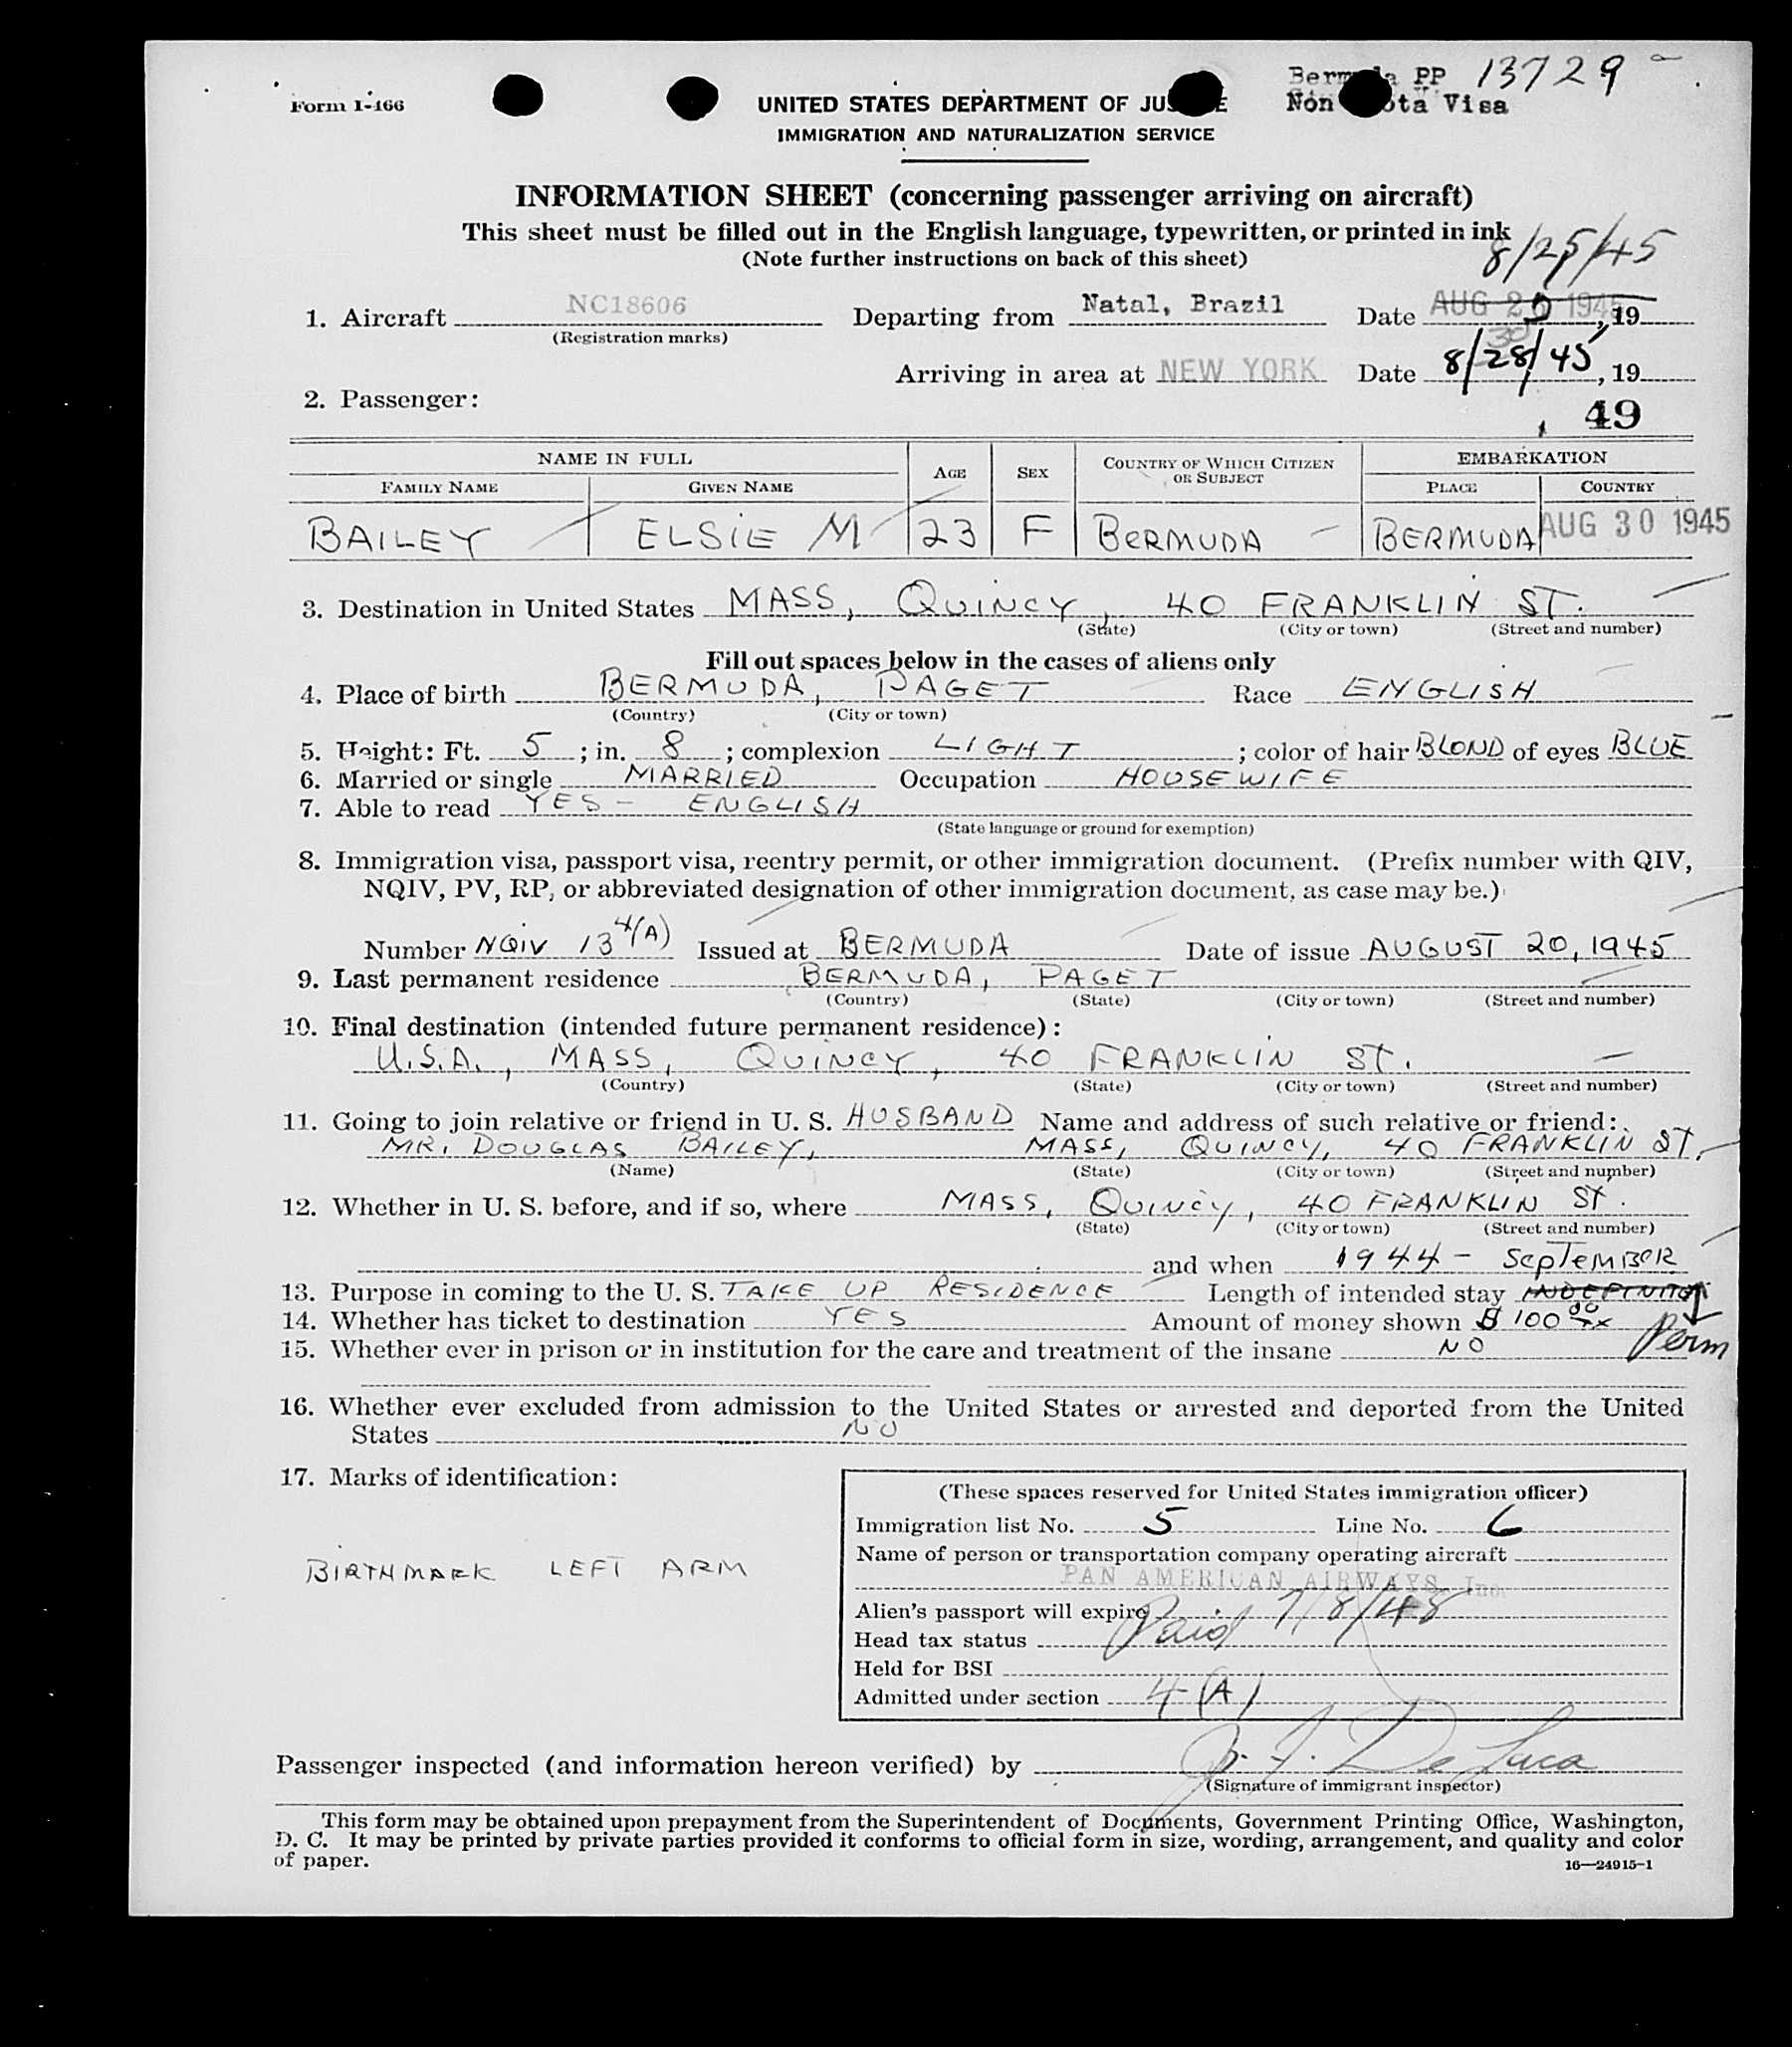 Form I-466
Bermuda PP 13729
UNITED STATES DEPARTMENT OF JUSTICE
Non Quota Visa
IMMIGRATION AND NATURALIZATION SERVICE
INFORMATION SHEET (concerning passenger arriving on aircraft)
This sheet must be filled out in the English language, typewritten, or printed in ink
(Note further instructions on back of this sheet)
8/25/45
1. Aircraft NC18606 Departing from Natal, Brazil Date AUG 25 1945, 19
(Registration marks)
30
Arriving in area at NEW YORK Date 8/28/45, 19
2. Passenger:
49
NAME IN FULL AGE SEX COUNTRY OF WHICH CITIZEN OR SUBJECT EMBARKATION
FAMILY NAME GIVEN NAME PLACE COUNTRY
BAILEY ELSIE M 23 F BERMUDA BERMUDA AUG 30 1945
3. Destination in United States MASS, QUINCY, 40 FRANKLIN ST.
(State) (City or town) (Street and number)
Fill out spaces below in the cases of aliens only
4. Place of birth BERMUDA, PAGET Race ENGLISH
(Country) (City or town)
5. Height: Ft. 5; in. 8; complexion LIGHT; color of hair BLOND of eyes BLUE
6. Married or single MARRIED Occupation HOUSEWIFE
7. Able to read YES - ENGLISH
(State language or ground for exemption)
8. Immigration visa, passport visa, reentry permit, or other immigration document. (Prefix number with QIV,
NQIV, PV, RP, or abbreviated designation of other immigration document, as case may be.)
Number NQIV 13 4(A) Issued at BERMUDA Date of issue AUGUST 20, 1945
9. Last permanent residence BERMUDA, PAGET
(Country) (State) (City or town) (Street and number)
10. Final destination (intended future permanent residence):
U.S.A., MASS, QUINCY, 40 FRANKLIN ST.
(Country) (State) (City or town) (Street and number)
11. Going to join relative or friend in U. S. HUSBAND Name and address of such relative or friend:
MR. DOUGLAS BAILEY, MASS, QUINCY, 40 FRANKLIN ST.
(Name) (State) (City or town) (Street and number)
12. Whether in U. S. before, and if so, where MASS, QUINCY, 40 FRANKLIN ST.
(State) (City or town) (Street and number)
and when 1944 - SEPTEMBER
13. Purpose in coming to the U. S. TAKE UP RESIDENCE Length of intended stay INDEFINITE
14. Whether has ticket to destination YES Amount of money shown $100 00/xx Perm
15. Whether ever in prison or in institution for the care and treatment of the insane NO
16. Whether ever excluded from admission to the United States or arrested and deported from the United
States NO
17. Marks of identification:
BIRTHMARK LEFT ARM
(These spaces reserved for United States immigration officer)
Immigration list No. 5 Line No. 6
Name of person or transportation company operating aircraft
PAN AMERICAN AIRWAYS, Inc.
Alien's passport will expire 7/8/48
Head tax status Paid
Held for BSI
Admitted under section 4(A)
Passenger inspected (and information hereon verified) by J. J. De Luca
(Signature of immigrant inspector)
This form may be obtained upon prepayment from the Superintendent of Documents, Government Printing Office, Washington,
D. C. It may be printed by private parties provided it conforms to official form in size, wording, arrangement, and quality and color
of paper.
16—24915-1